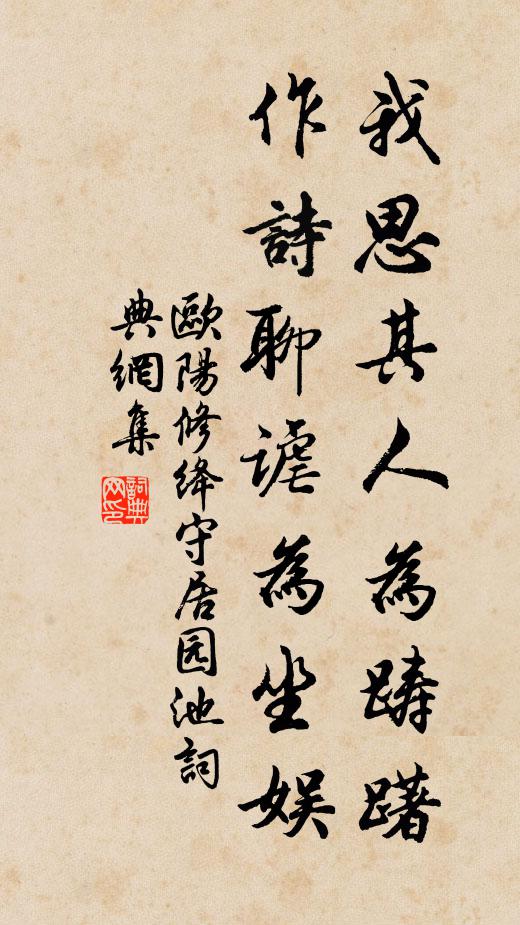 我思其人為躊躇
作詩聊謔為坐娱
歐陽修绛守居园池詞
典網集
詞典网印